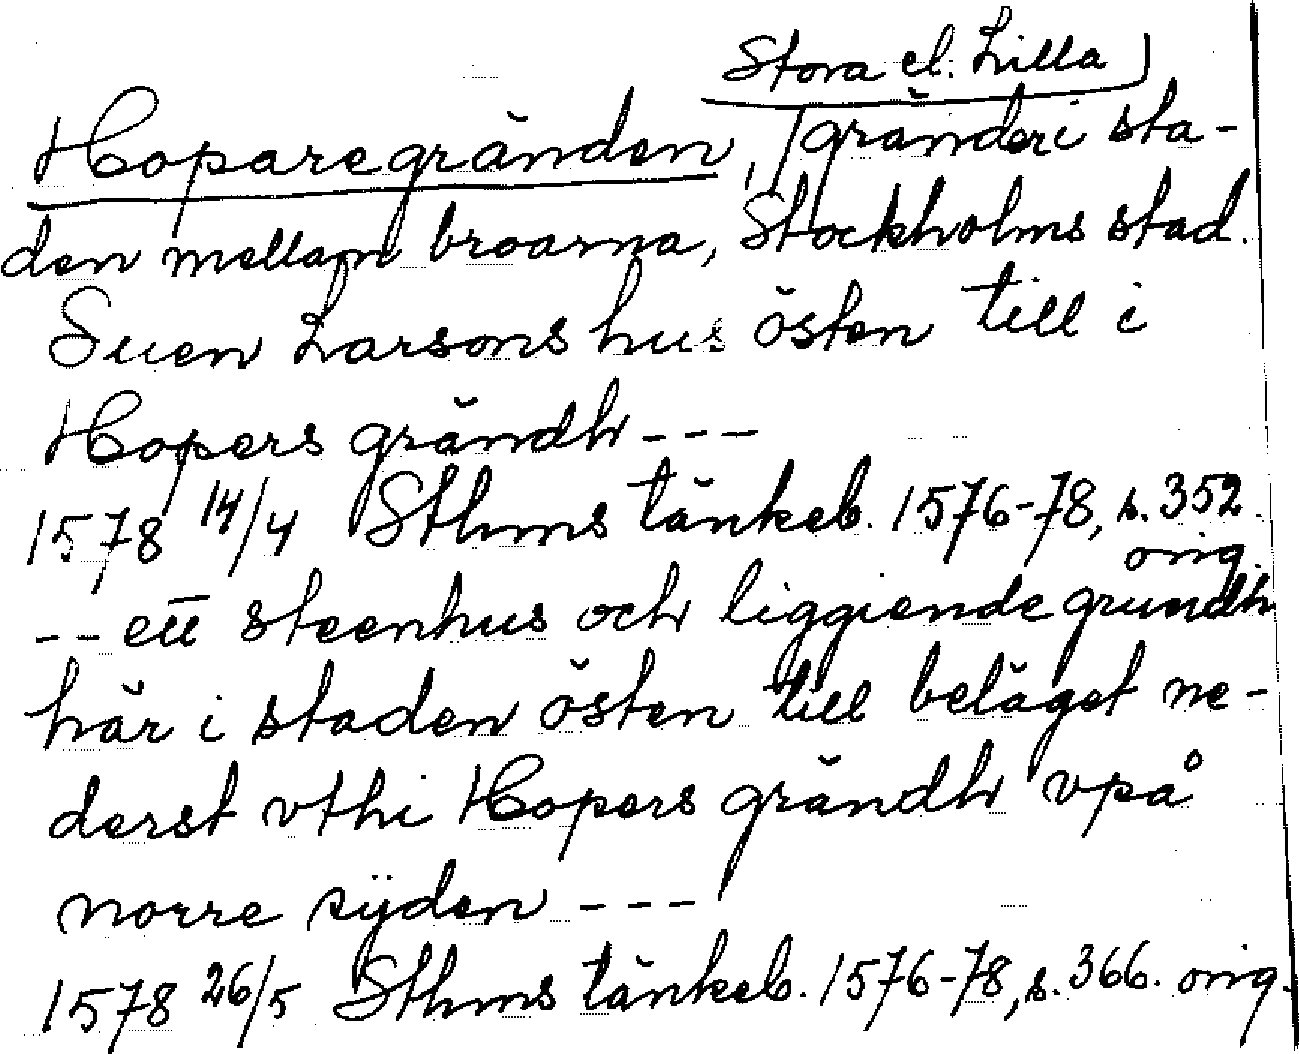 Stora el. Lilla
Hoparegränden, gränder i sta-
den mellam broarna, Stockholms stad.
Suen Larsons hus östen till i
Hopers grändh ---
1578 14/4 Sthms tänkeb. 1576-78, s. 352.
orig.
-- ett steenhus och liggiende grundh
här i staden östen till beläget ne-
derst vthi Hopers grändh vpå
norre sÿden ---
1578 26/5 Sthms tänkeb. 1576-78, s. 366. orig.